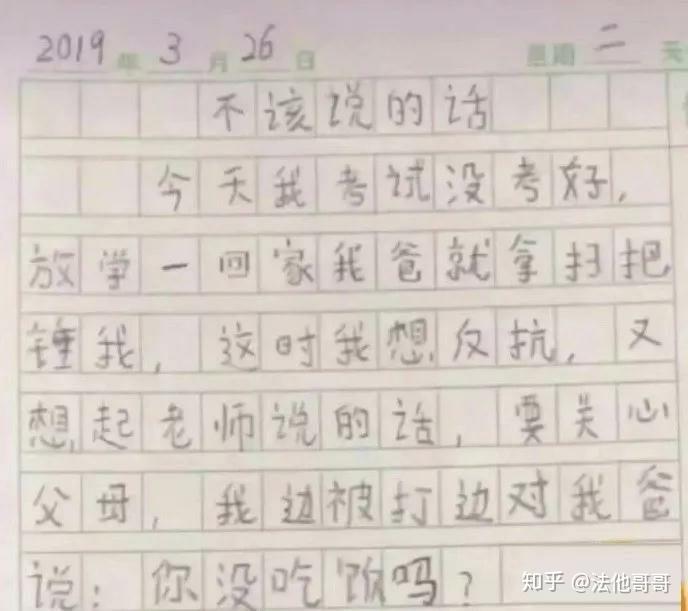 2019年3月26日 星期二 天
不该说的话
今天我考试没考好，
放学一回家我爸就拿扫把
锤我，这时我想反抗，又
想起老师说的话，要关心
父母，我边被打边对我爸
说：你没吃饭吗？
知乎 @法他哥哥